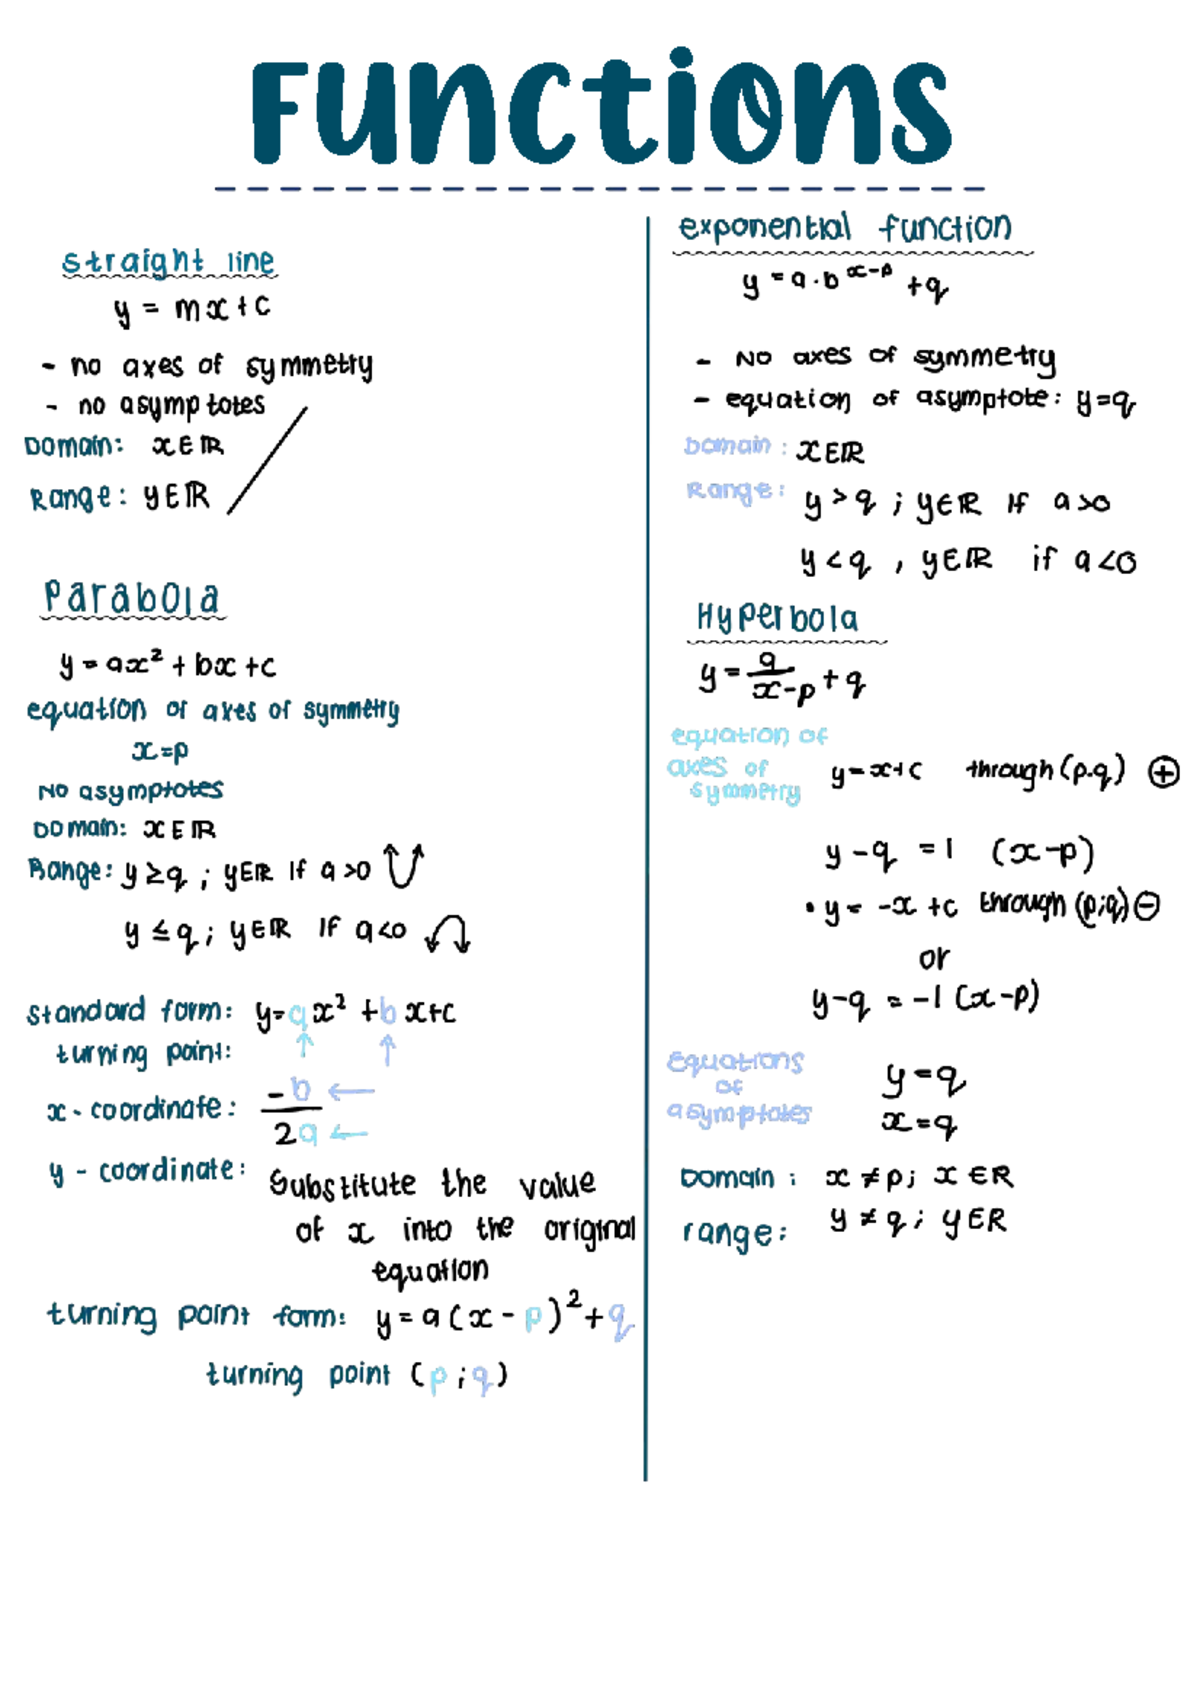 Functions
straight line
y = mx + c
- no axes of symmetry
- no asymptotes
Domain: x∈ℝ
Range: y∈ℝ
Parabola
y = ax² + bx + c
equation of axes of symmetry
x=p
No asymptotes
Domain: x∈ℝ
Range: y ≥ q ; y∈ℝ if a >0
y ≤ q ; y∈ℝ if a<0
standard form: y=ax² + bx+c
turning point:
x - coordinate: -b/2a
y - coordinate: Substitute the value
of x into the original
equation
turning point form: y = a(x - p)² + q
turning point (p ; q)
exponential function
y = a·b^(x-p) + q
- No axes of symmetry
- equation of asymptote: y=q
Domain : x∈ℝ
Range: y > q ; y∈ℝ if a >0
y < q , y∈ℝ if a <0
Hyperbola
y = a/(x-p) + q
equation of
axes of
symmetry
y=x+c through (p.q) ⊕
y - q = 1 (x-p)
• y = -x + c through (p;q) ⊖
or
y-q = -1 (x-p)
equations
of
asymptotes
y=q
x=q
Domain : x ≠ p; x ∈R
range: y ≠ q ; y∈R